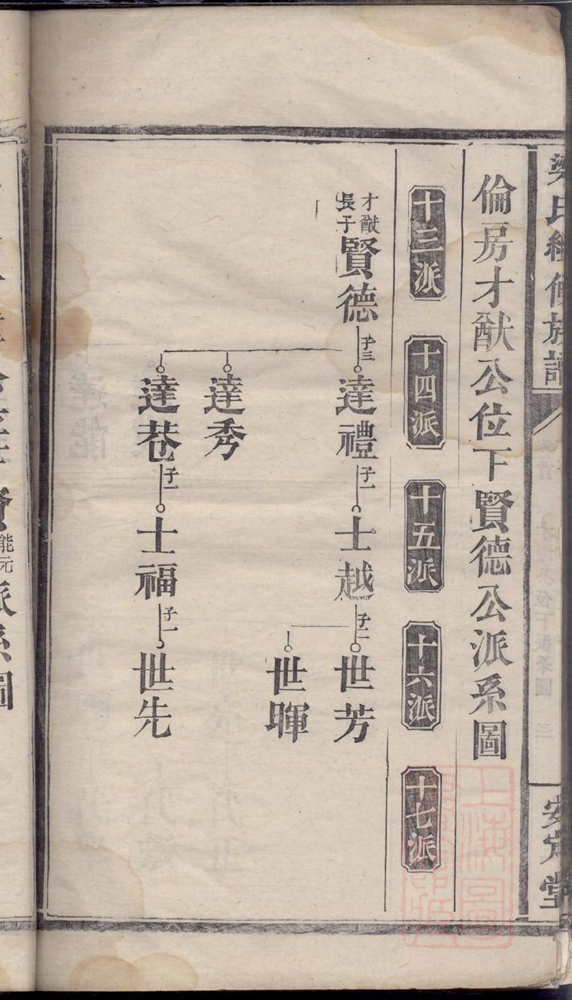 梁氏經修族譜
安定堂
倫房才猷公位下賢德公派系圖
十三派
十四派
十五派
十六派
十七派
才猷長子
賢德
子三
達禮
子一
士越
子二
世芳
世暉
達秀
達巷
子一
士福
子一
世先
賢
能元
派系圖